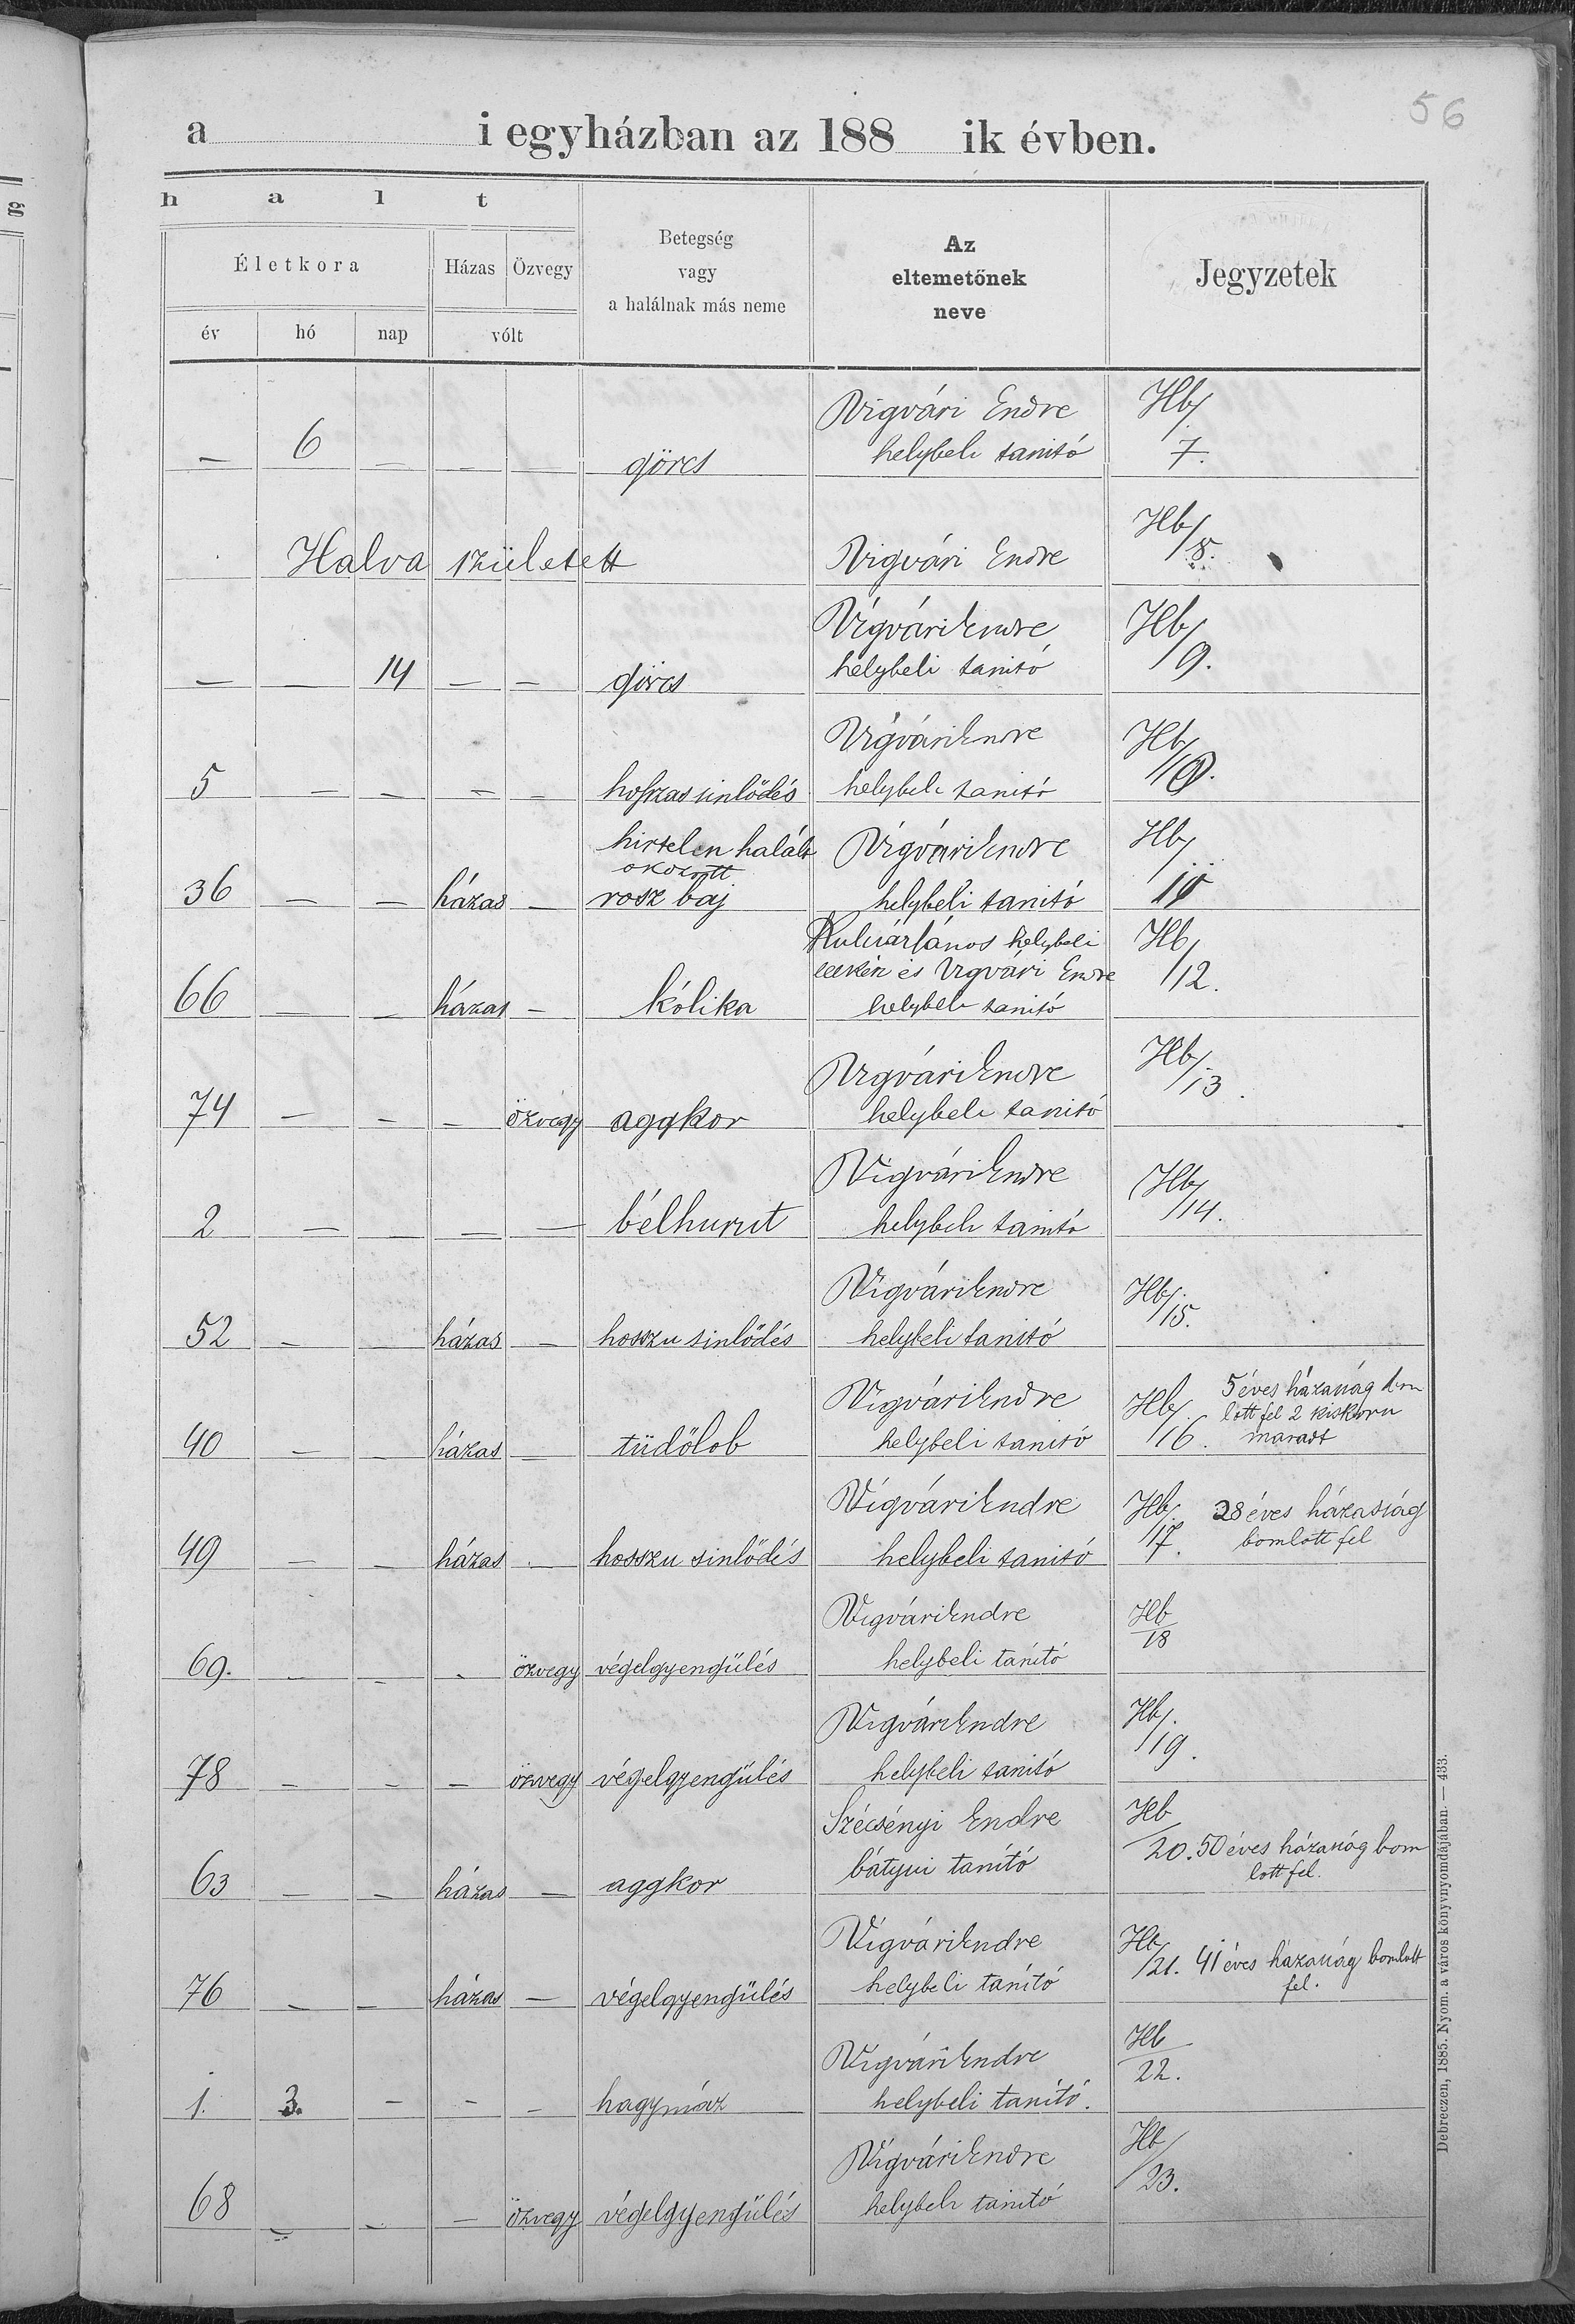 56
a i egyházban az 188 ik évben.
g
h a l t
Életkora Házas Özvegy
Betegség
vagy
a halálnak más neme
Az
eltemetőnek
neve
Jegyzetek
év hó nap vólt
Vigvári Endre Hb/
— 6 — — — görcs helybeli tanitó 7.
Hb/
Halva született Vigvári Endre 8.
Vigvári Endre Hb/
— — 14 — — görcs helybeli tanitó 9.
Vigvári Endre Hb/
5 — — — — hoszas sinlődés helybeli tanitó 10.
hirtelen halált Vigvári Endre Hb/
okozott
36 — — házas — rosz baj helybeli tanitó 11
János helybeli Hb/
és Vigvári Endre 12.
66 — — házas — kólika helybeli tanitó
Vigvári Endre Hb/
13.
74 — — — özvegy aggkor helybeli tanitó
Vigvári Endre Hb/
14.
2 — — — — bélhurut helybeli tanitó
Vigvári Endre Hb/
15.
52 — — házas — hosszu sinlődés helybeli tanitó
Vigvári Endre Hb/ 5 éves házasság bom
lott fel 2 kiskoru
40 — — házas — tüdőlob helybeli tanitó 16. maradt
Vigvári Endre Hb/ 28 éves házasság
17. bomlott fel
49 — — házas — hosszu sinlődés helybeli tanitó
Vigvári Endre Hb
18
69. — — — özvegy végelgyengülés helybeli tanító
Vigvári Endre Hb/
19.
78 — — — özvegy végelgyengülés helybeli tanitó
Szécsényi Endre Hb
20. 50 éves házasság bom
63 — — házas — aggkor bátyui tanító lott fel.
Vigvári Endre Hb/
21. 41 éves házasság bomlott
76 — — házas — végelgyengülés helybeli tanító fel.
Vigvári Endre Hb
22.
1. 3. — — — hagymáz helybeli tanító.
Vigvári Endre Hb/
23.
68 — — — özvegy végelgyengülés helybeli tanitó
Debreczen, 1885. Nyom. a város könyvnyomdájában. — 433.